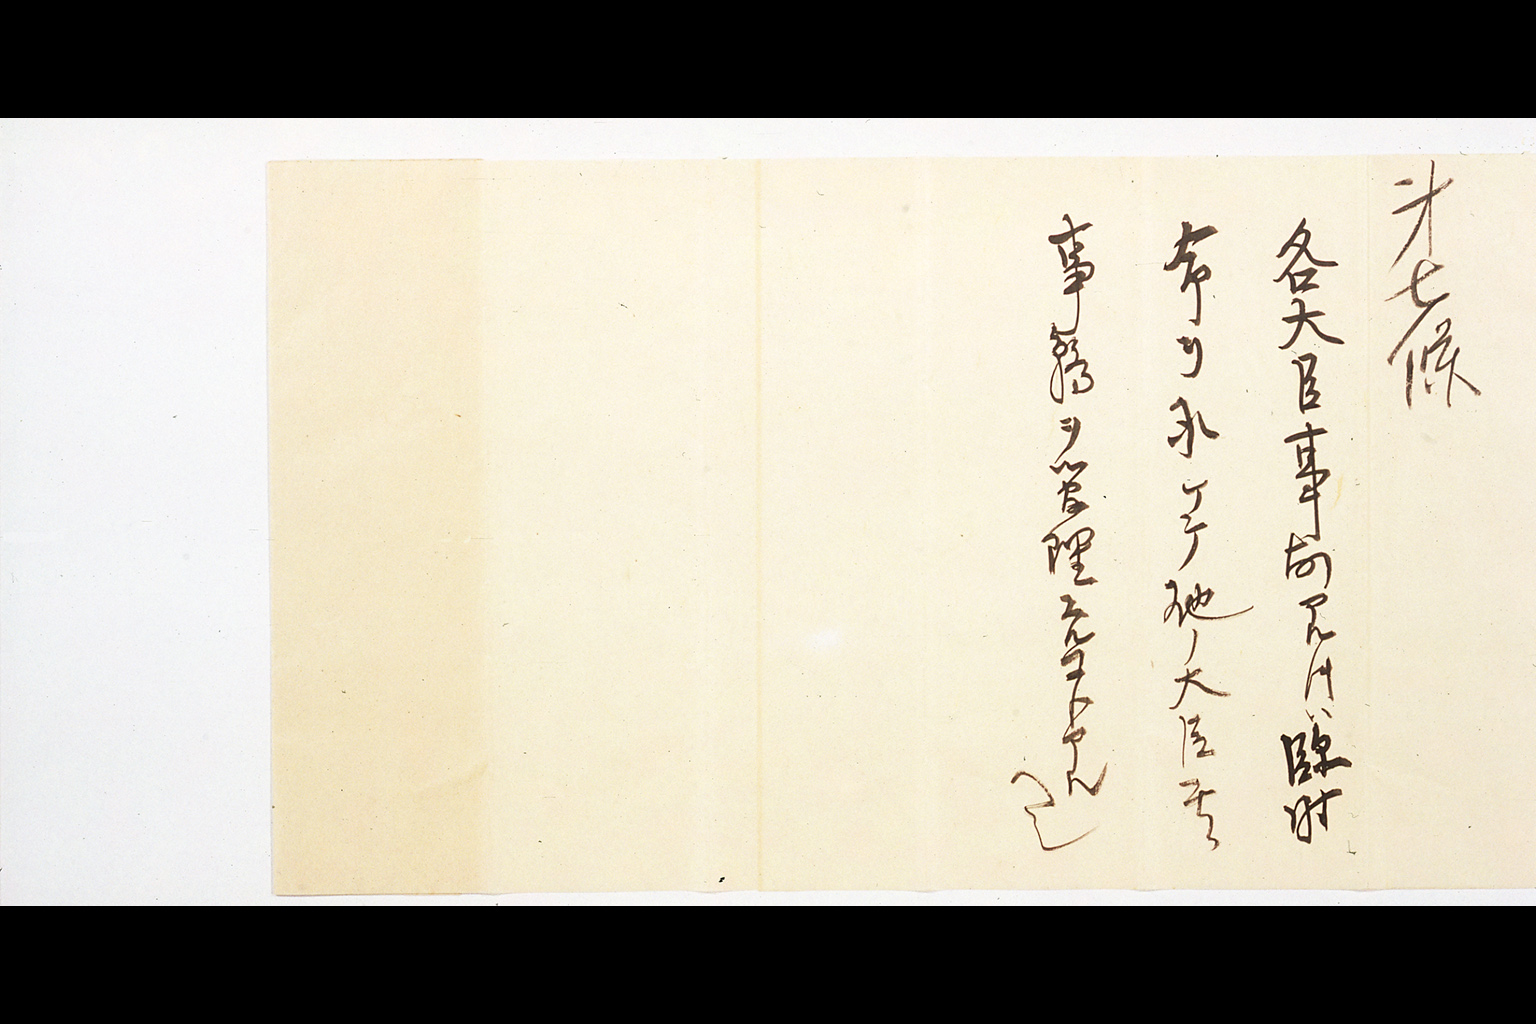 第七條
各大臣事故アルトキハ臨時
命ヲ承ケテ他ノ大臣其
事務ヲ管理スルコトアルヘシ